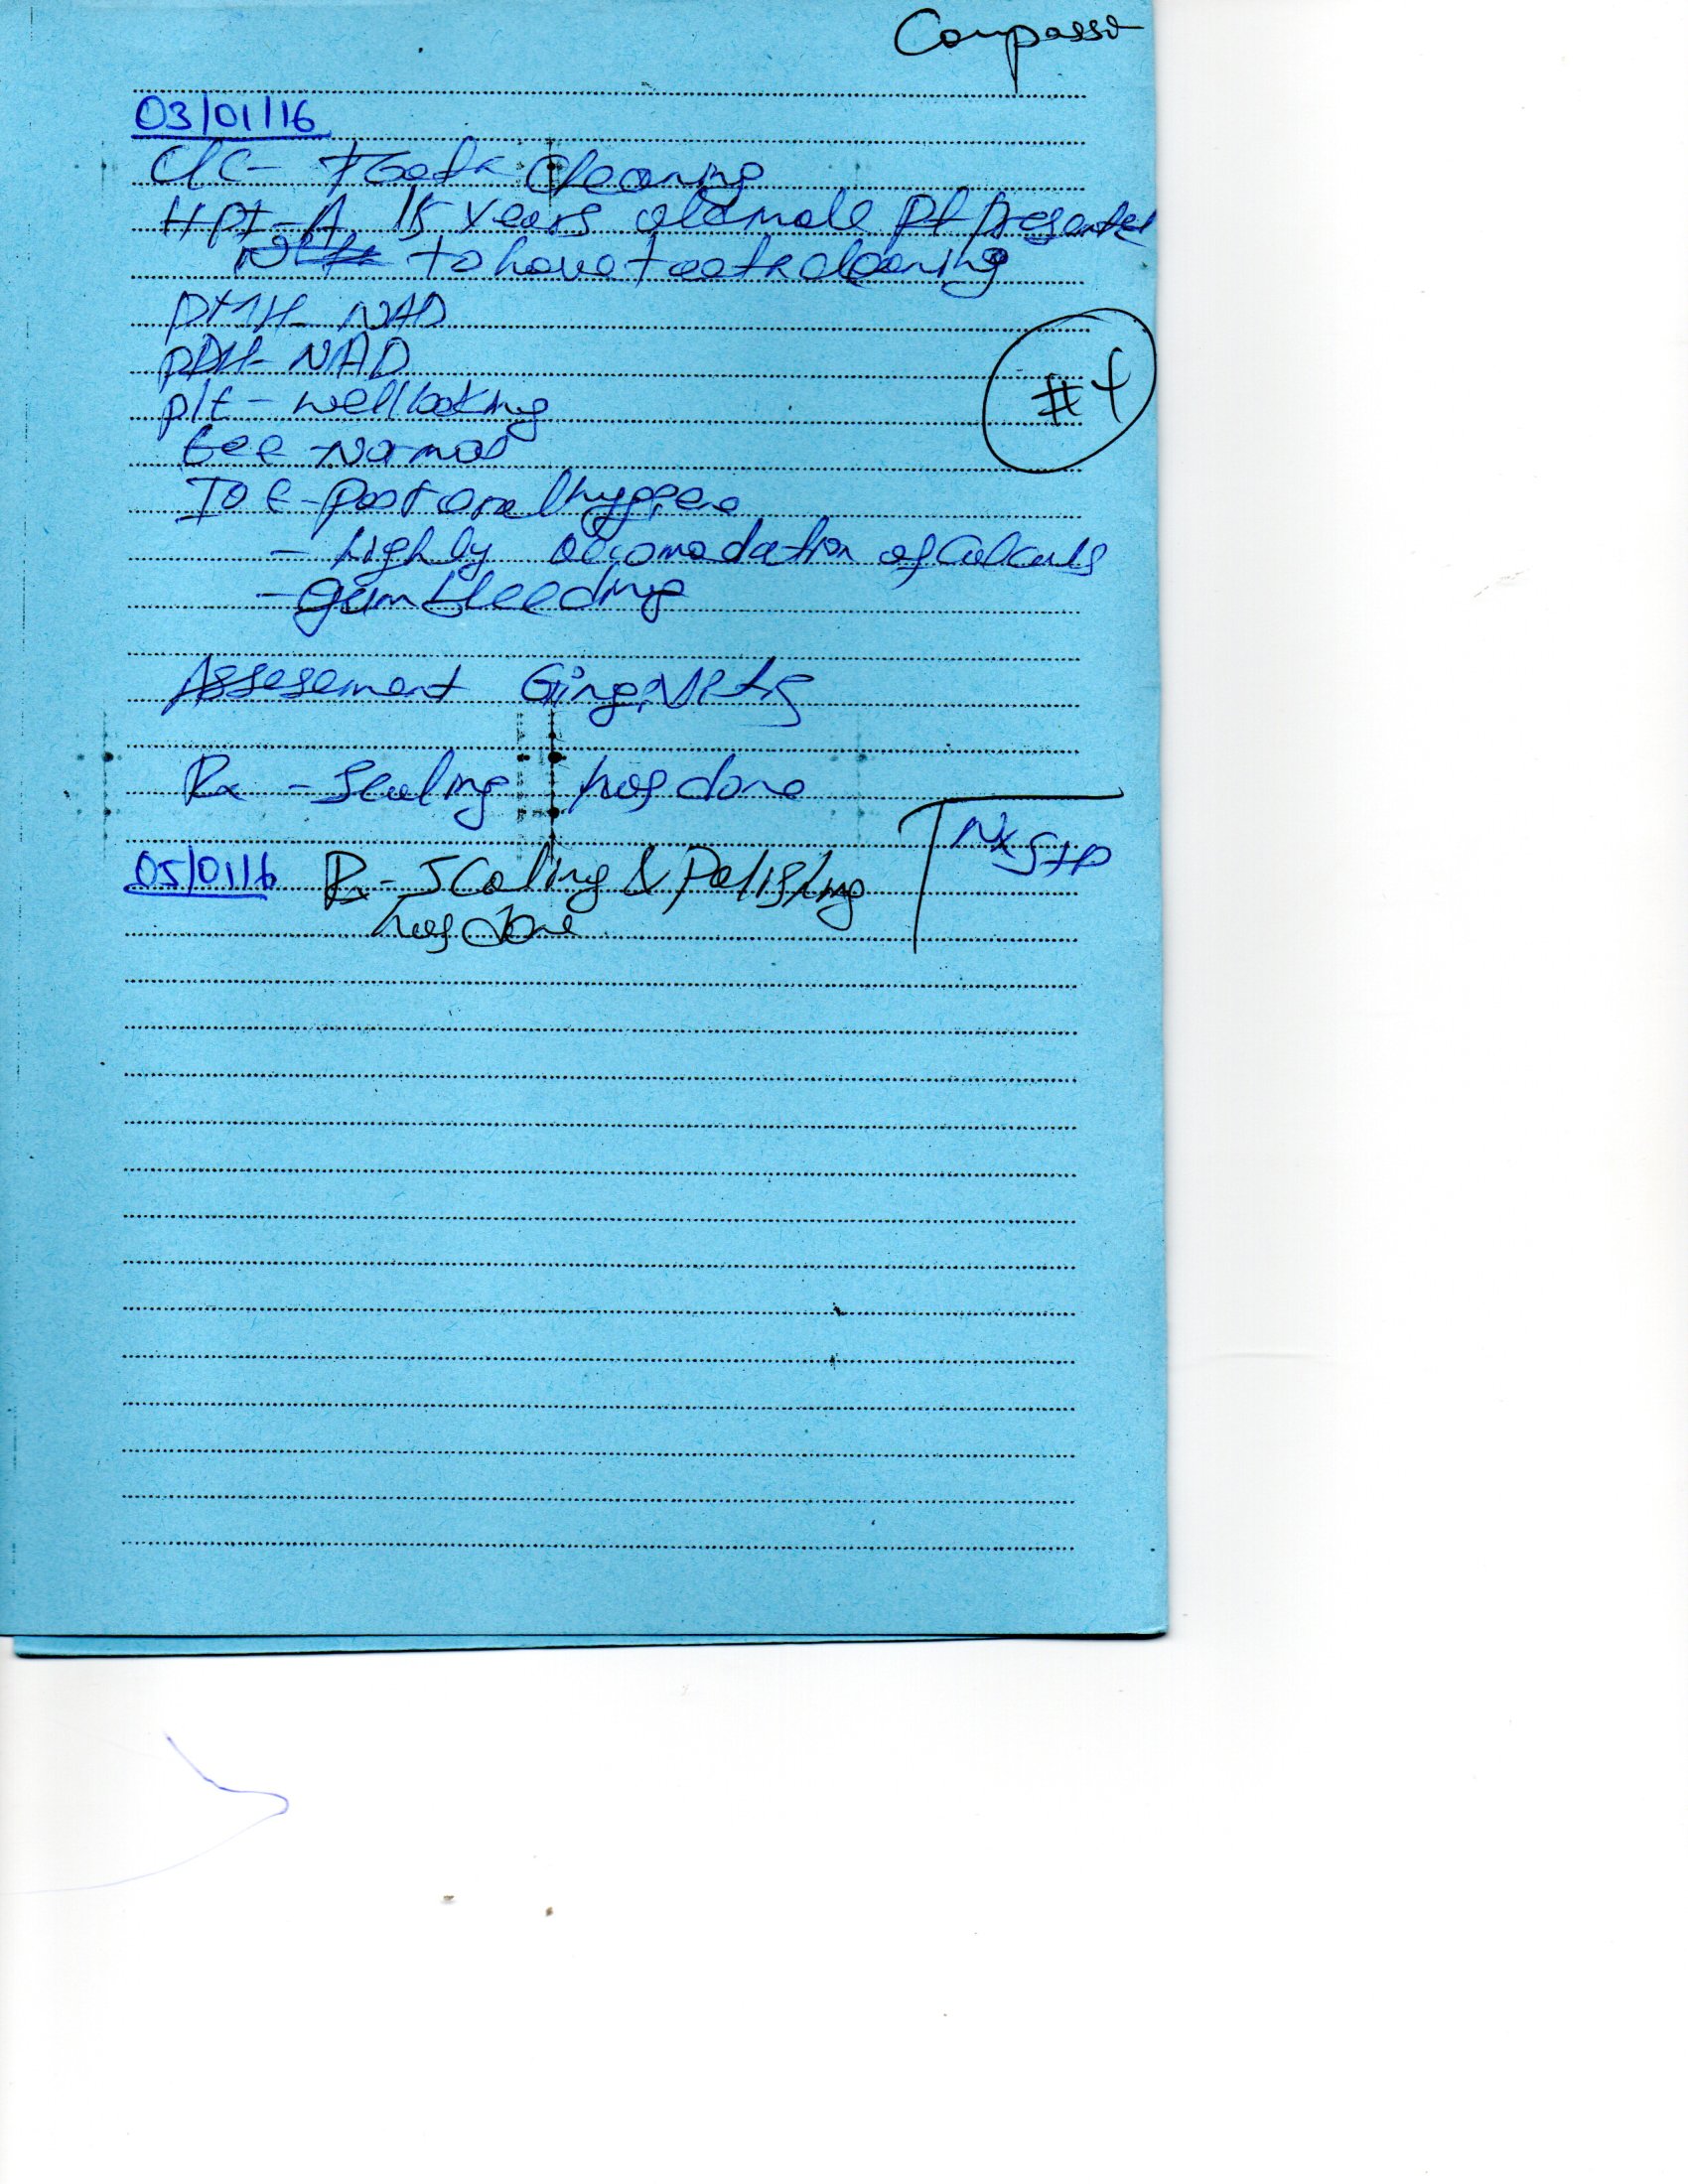 Compasso
03/01/16
C/C - Teeth cleaning
HPI - A 15 years old male pt presented
to have teeth cleaning
PMH - NAD
PDH - NAD
P/E - well looking
EOE - Normal
IOE - poor oral hygiene
- highly accomodation of calculs
- gum bleeding
#4
Assesement Gingivitis
Rx - Scaling was done
Nx S+P
05/01/16 Rx - Scaling & Polishing
was done